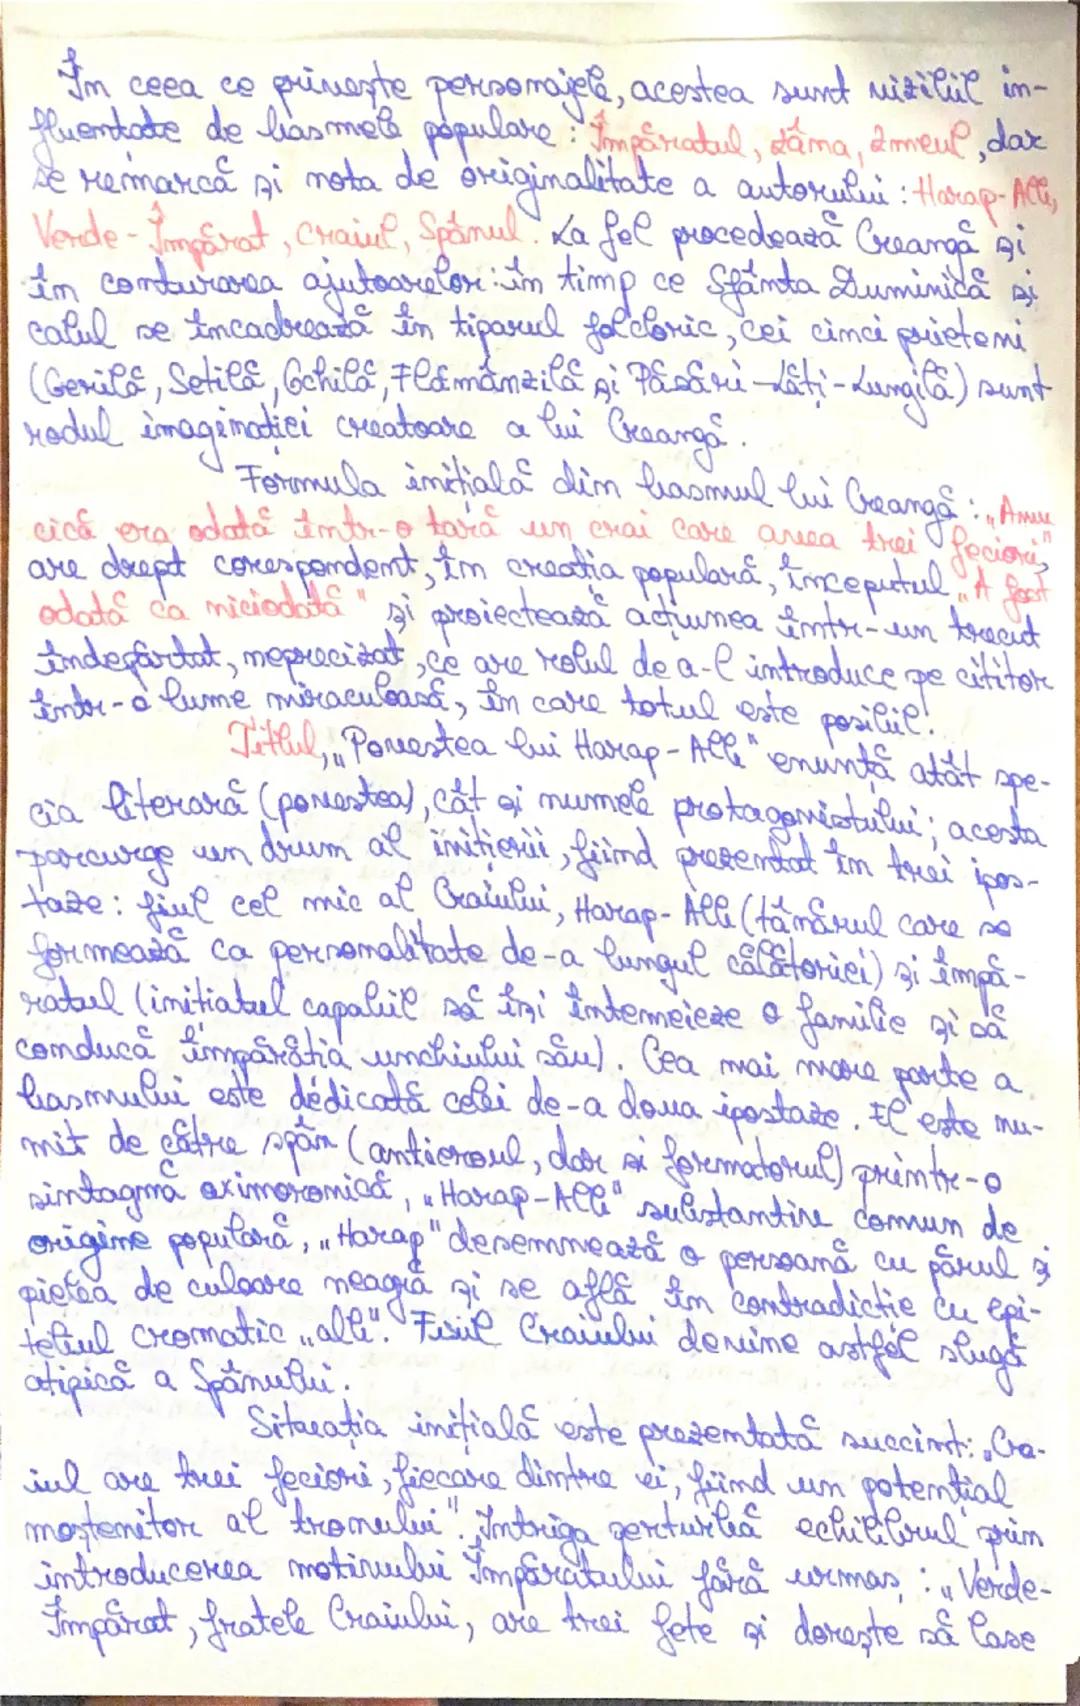 În ceea ce privește personajele, acestea sunt vizibil in-
fluențate de basmele populare: Împăratul, zâna, zmeul, dar
se remarcă și nota de originalitate a autorului: Harap-Alb,
Verde-Împărat, Craiul, Spânul. La fel procedează Creangă și
în conturarea ajutoarelor: în timp ce Sfânta Duminică și
calul se încadrează în tiparul folcloric, cei cinci prieteni
(Gerilă, Setilă, Ochilă, Flămânzilă și Păsări-Lăți-Lungilă) sunt
rodul imaginației creatoare a lui Creangă.
Formula inițială din basmul lui Creangă: „Amu
cică era odată într-o țară un crai care avea trei feciori"
are drept corespondent, în creația populară, începutul „A fost
odată ca niciodată" și proiectează acțiunea într-un trecut
îndepărtat, neprecizat, ce are rolul de a-l introduce pe cititor
într-o lume miraculoasă, în care totul este posibil!
Titlul, „Povestea lui Harap-Alb" enunță atât spe-
cia literară (povestea), cât și numele protagonistului; acesta
parcurge un drum al inițierii, fiind prezentat în trei ipos-
taze: fiul cel mic al Craiului, Harap-Alb (tânărul care se
formează ca personalitate de-a lungul călătoriei) și împă-
ratul (inițiatul capabil să își întemeieze o familie și să
conducă împărăția unchiului său). Cea mai mare parte a
basmului este dedicată celei de-a doua ipostaze. El este nu-
mit de către spân (antieroul, dar și formatorul) printr-o
sintagmă oximoronică, „Harap-Alb" substantiv comun de
origine populară, „Harap" desemnează o persoană cu părul și
pielea de culoare neagră și se află în contradicție cu epi-
tetul cromatic „alb". Fiul Craiului devine astfel slugă
atipică a Spânului.
Situația inițială este prezentată succint: „Cra-
iul are trei feciori, fiecare dintre ei, fiind un potențial
moștenitor al tronului". Intriga perturbă echilibrul prin
introducerea motivului Împăratului fără urmaș: „Verde-
Împărat, fratele Craiului, are trei fete și dorește să lase